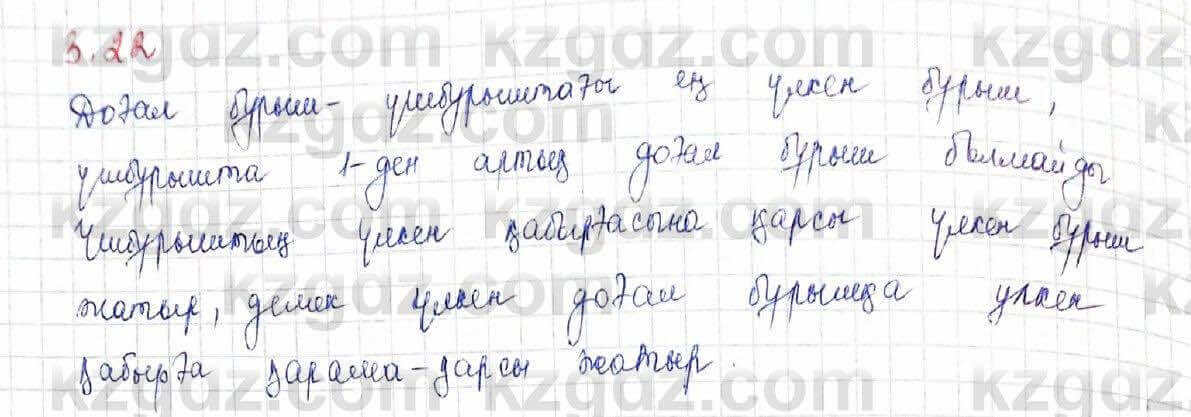 3.22
Доғал бұрыш- үшбұрыштағы ең үлкен бұрыш,
үшбұрышта 1-ден артық доғал бұрыш болмайды
Үшбұрыштың үлкен қабырғасына қарсы үлкен бұрыш
жатыр, демек үлкен доғал бұрышқа үлкен
қабырға қарама-қарсы жатыр.